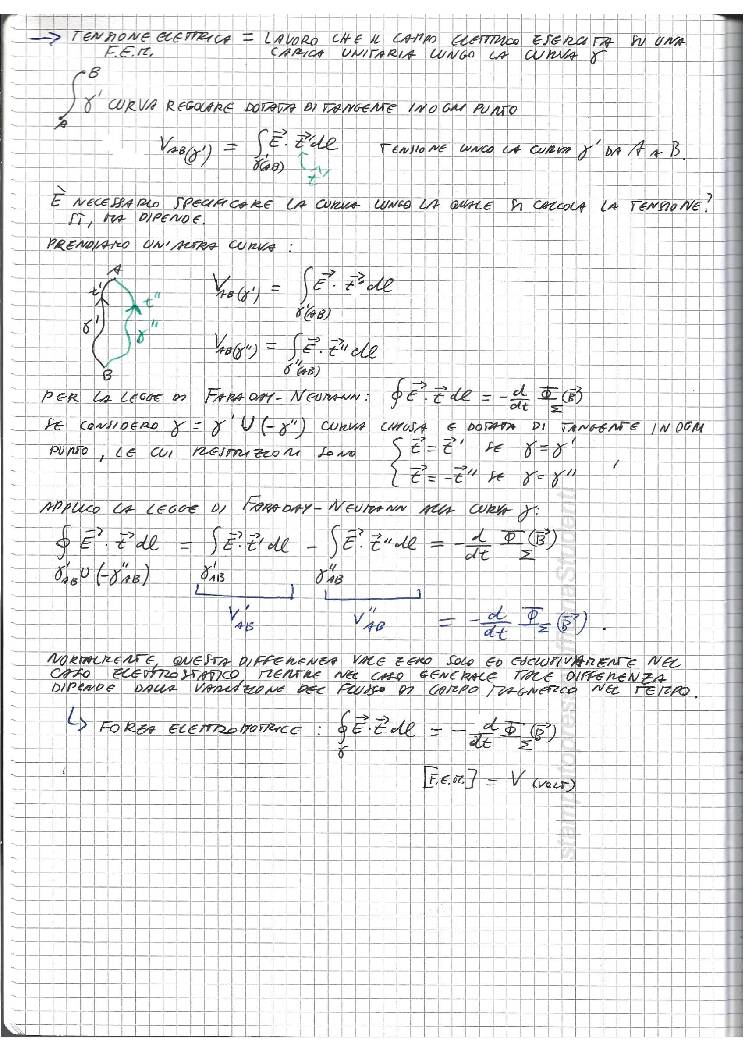 → TENSIONE ELETTRICA = LAVORO CHE IL CAMPO ELETTRICO ESERCITA SU UNA
F.E.M. CARICA UNITARIA LUNGO LA CURVA γ
B
γ' CURVA REGOLARE DOTATA DI TANGENTE IN OGNI PUNTO
A
V_AB(γ') = ∫_γ'(AB) E⃗ · t⃗' dl TENSIONE LUNGO LA CURVA γ' DA A A B.
t'
È NECESSARIO SPECIFICARE LA CURVA LUNGO LA QUALE SI CALCOLA LA TENSIONE?
SI, MA DIPENDE.
PRENDIAMO UN'ALTRA CURVA :
A
t' t''
γ' γ''
B
V_AB(γ') = ∫_γ'(AB) E⃗ · t⃗' dl
V_AB(γ'') = ∫_γ''(AB) E⃗ · t⃗'' dl
PER LA LEGGE DI FARADAY-NEUMANN: ∮ E⃗ · t⃗ dl = - d/dt Φ_Σ (B⃗)
SE CONSIDERO γ = γ' ∪ (-γ'') CURVA CHIUSA E DOTATA DI TANGENTE IN OGNI
PUNTO, LE CUI RESTRIZIONI SONO { t⃗ = t⃗' SE γ = γ'
t⃗ = -t⃗'' SE γ = γ'' ,
APPLICO LA LEGGE DI FARADAY-NEUMANN ALLA CURVA γ:
∮_γ'AB ∪ (-γ''AB) E⃗ · t⃗ dl = ∫_γ'AB E⃗ · t⃗' dl - ∫_γ''AB E⃗ · t⃗'' dl = - d/dt Φ_Σ (B⃗)
V'_AB V''_AB = - d/dt Φ_Σ (B⃗) .
NORMALMENTE, QUESTA DIFFERENZA VALE ZERO SOLO ED ESCLUSIVAMENTE NEL
CASO ELETTROSTATICO, MENTRE NEL CASO GENERALE TALE DIFFERENZA
DIPENDE DALLA VARIAZIONE DEL FLUSSO DI CAMPO MAGNETICO NEL TEMPO.
↳ FORZA ELETTROMOTRICE : ∮_γ E⃗ · t⃗ dl = - d/dt Φ_Σ (B⃗)
[F.E.M.] = V (VOLT)